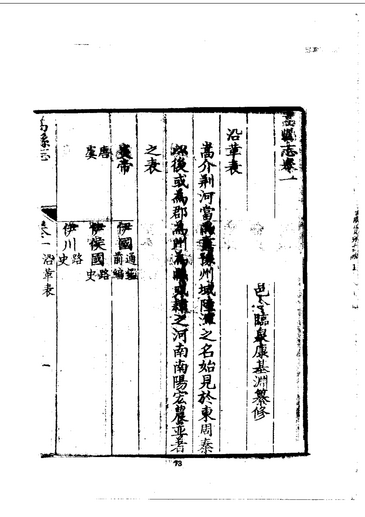 嵩縣志卷一
邑令臨皐康基淵纂修
沿革表
嵩介荆河當禹貢豫州域陸渾之名始見於東周秦
漢後或為郡為州為縣隸之河南南陽宏農並著
之表
黃帝 伊國通鑑前編
唐虞 伊侯國路史
伊川路史
嵩縣志
卷一 沿革表
一
73